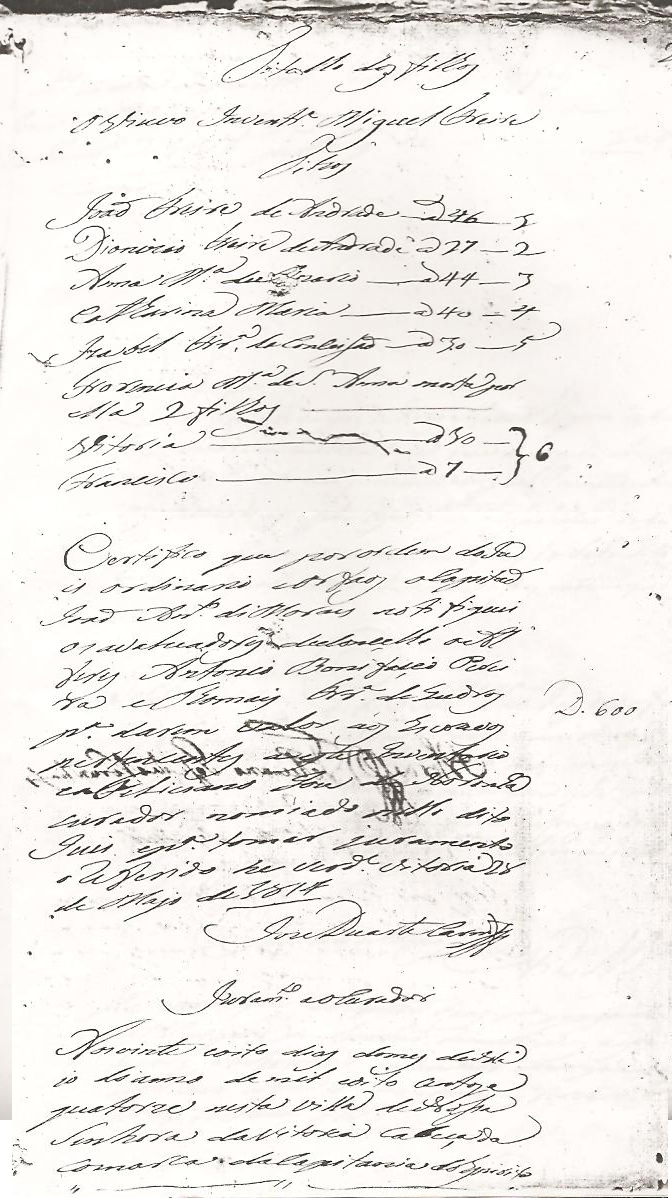 Titullo dos filhos
O Viuvo Inventr.º Miguel Freire
Filhos
João Freire de Andrade — a 46 — 1
Dionizio Freire de Andrade a 27 — 2
Anna M.ª do Rosario — a 44 — 3
Catharina Maria — a 40 — 4
Izabel Frr.ª da Conceição — a 30 — 5
Florencia M.ª de S. Anna morta por
ella 2 filhos
Vitoria — a 10 —
} 6
Francisco — a 7 —
Certifico que por ordem do Ju
is ordinario e orfaos o Capitaõ
João An.to de Morais notifiquei
os avaluadores do Concelho o Al
feres Antonio Bonifacio Pedei
ra e Thomas Frr.ª de
p.ª darem aos Escravos
pertencentes a este Inventario
e a Feliciano
curador nomiado pello dito
Juis e p.ª tomar juramento
o referido he verd.e Vitoria 28
de Majo de 1814
D. 600
Joze Duarte Carn.ro
Juram.to ao Curador
Aos vinte e oito dias do mes de Ma
io do anno de mil oito centos e
quatorze nesta Villa de Nossa
Senhora da Vitoria Cabeça da
comarca da Capitania do Espirito